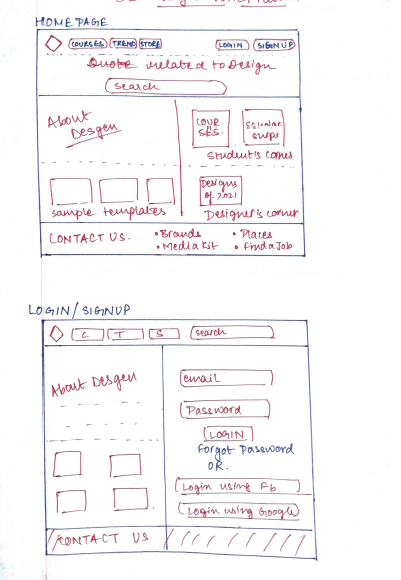 HOME PAGE
COURSES TREND STORE LOGIN SIGN UP
Quote related to Design
search
About
Desgen
COUR
SES.
Student's corner
sample templates
Designs
of 2021
Designer's corner
CONTACT US. • Brands • Places
• Media Kit • Find a Job
LOGIN/SIGNUP
C T S search
About Desgen
email
Password
LOGIN
Forgot Password
OR.
Login using Fb
Login using Google
CONTACT US